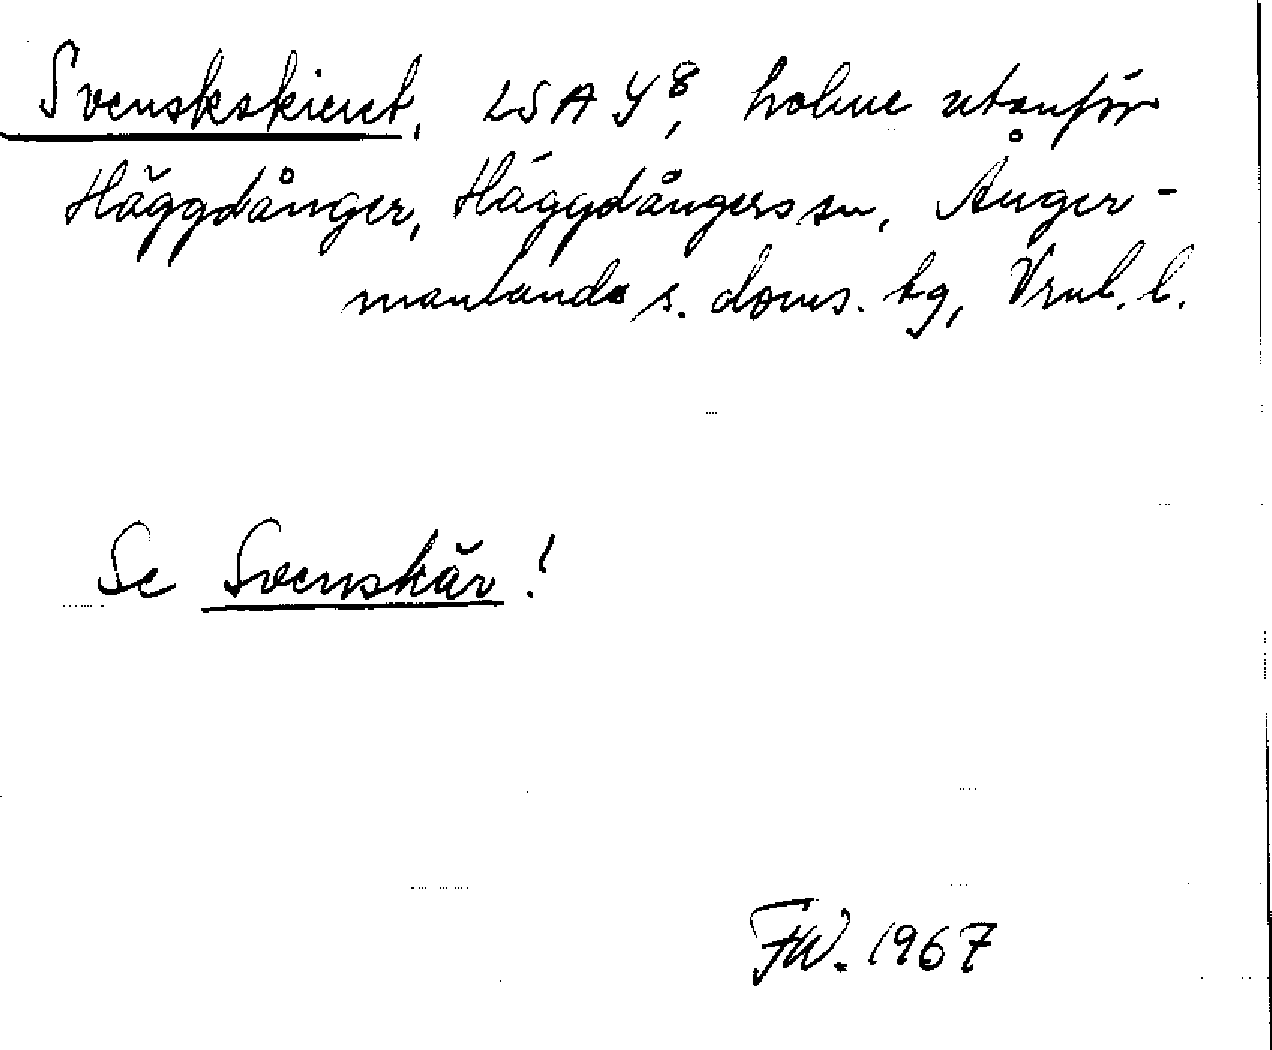 Svenskskieret, LSA Y⁸, holme utanför
Häggdånger, Häggdångers sn, Ånger-
manlands s. doms. tg, Vrnl. l.
Se Svenskär!
FW. 1967